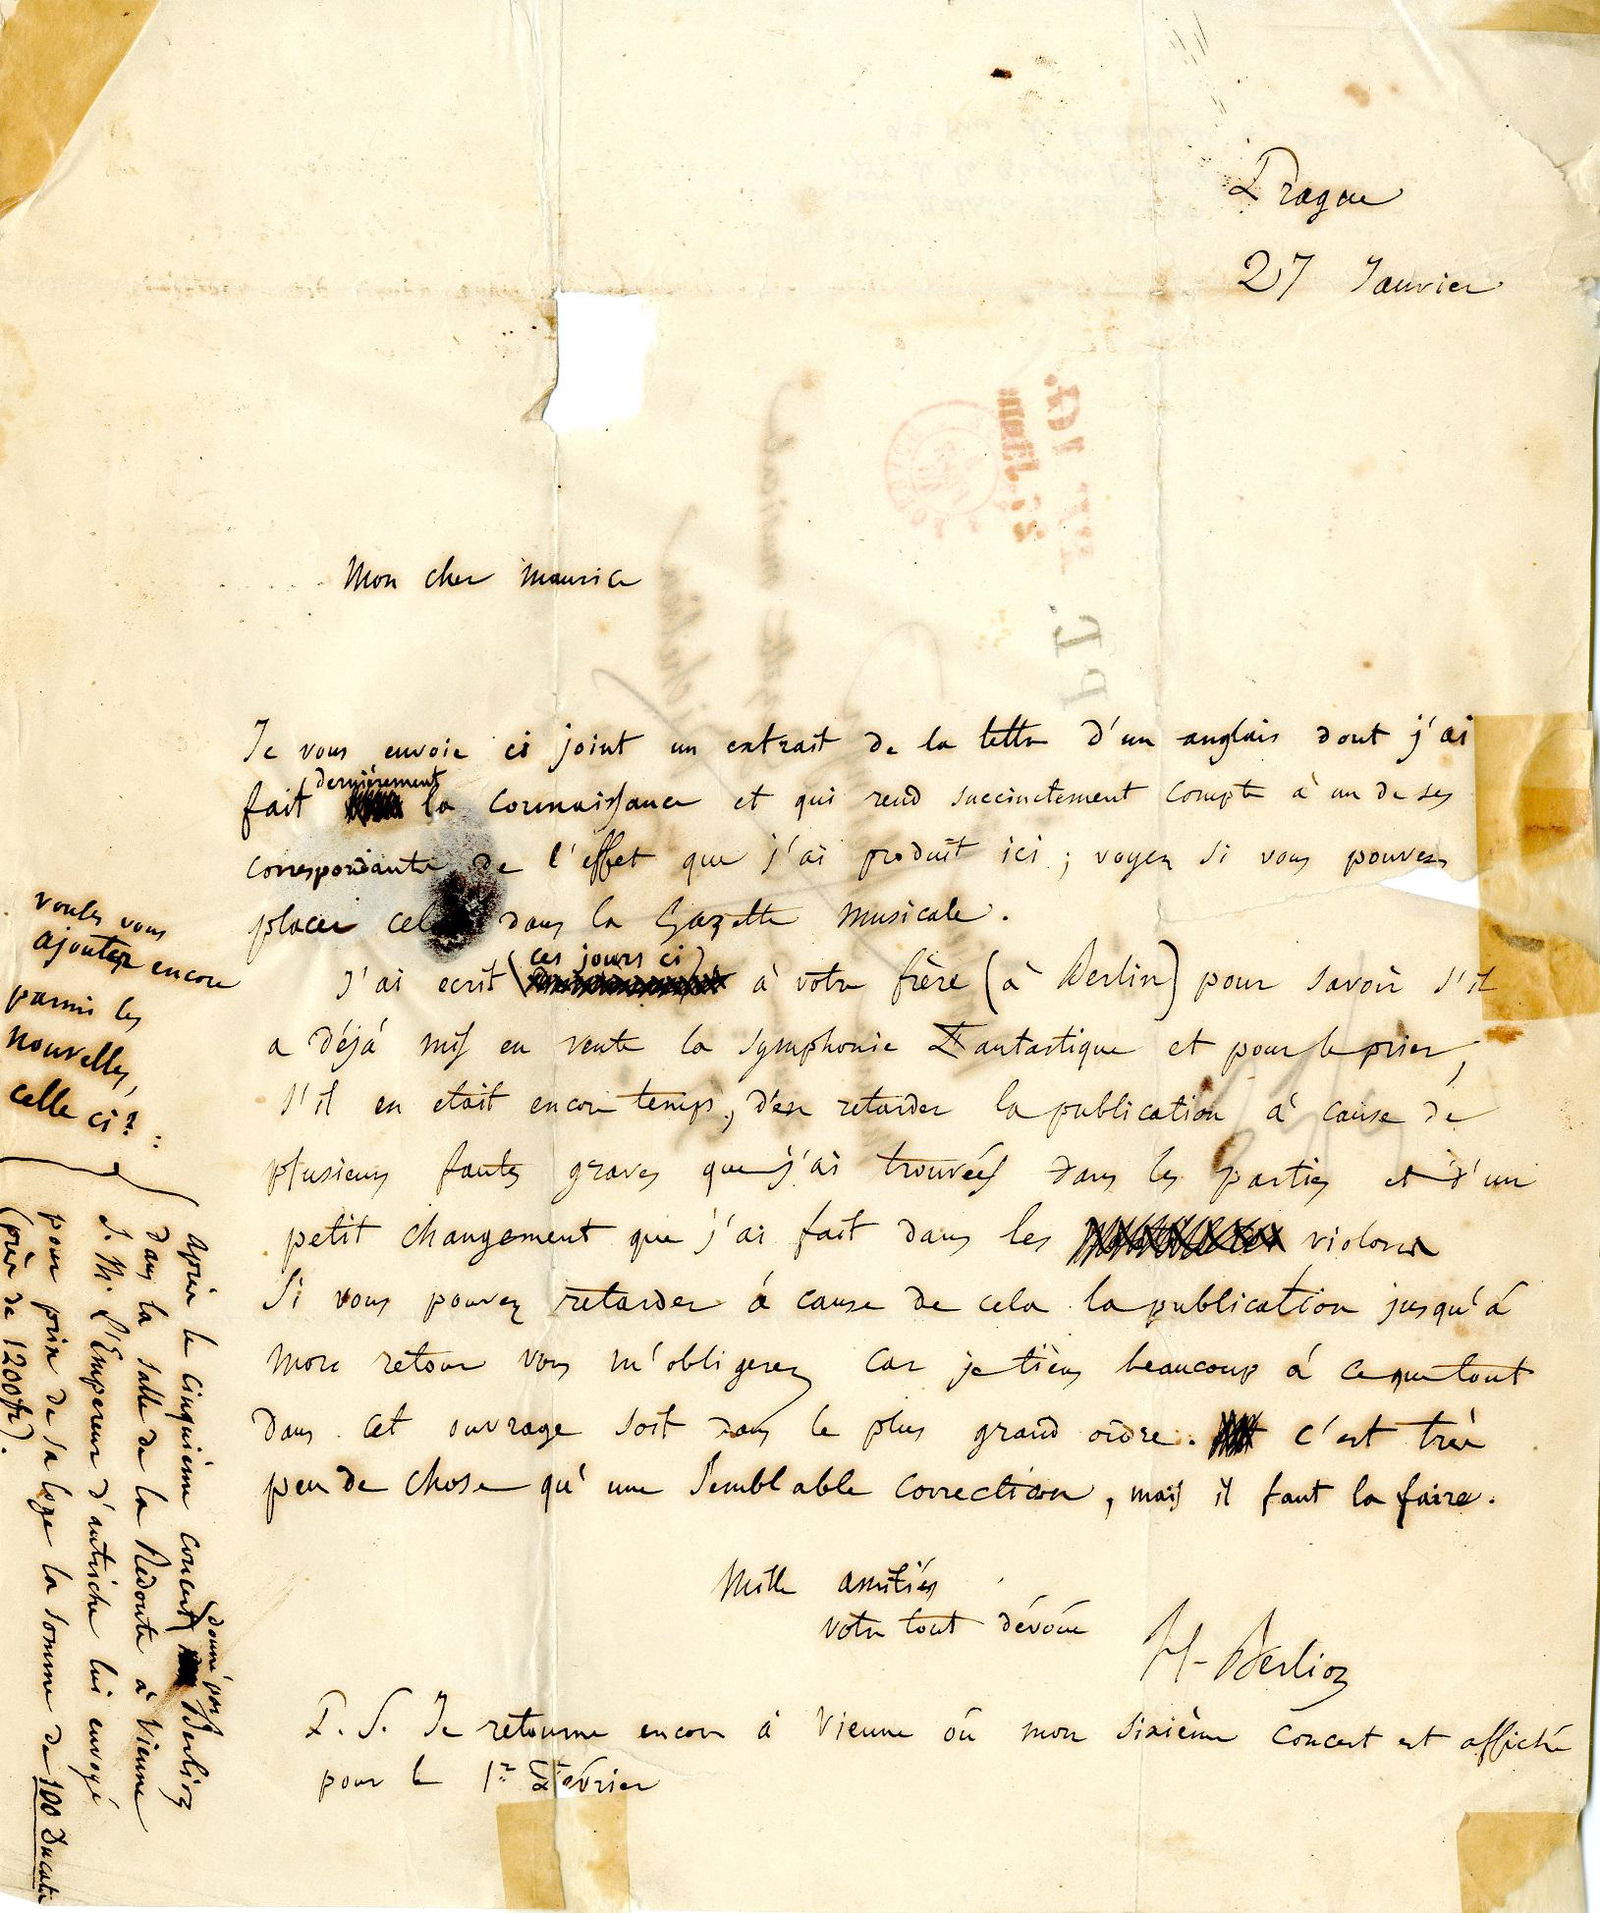 Prague
27 Janvier
Mon cher Maurice
Je vous envoie ci joint un extrait de la lettre d'un anglais dont j'ai
fait dernièrement la connaissance et qui rend succinctement compte à un de ses
correspondants de l'effet que j'ai produit ici ; voyez si vous pouvez
placer cela dans la Gazette Musicale.
J'ai ecrit (ces jours ci) à votre frère (à Berlin) pour savoir s'il
a déjà mis en vente la Symphonie Fantastique et pour le prier,
s'il en etait encore temps, d'en retarder la publication à cause de
plusieurs fautes graves que j'ai trouvées dans les parties et d'un
petit changement que j'ai fait dans les violons
Si vous pouvez retarder à cause de cela la publication jusqu'à
mon retour vous m'obligerez car je tiens beaucoup à ce que tout
dans cet ouvrage soit dans le plus grand ordre. c'est très
peu de chose qu'une semblable correction, mais il faut la faire.
Mille amitiés
votre tout dévoué
H. Berlioz
P. S. Je retourne encore à Vienne où mon sixième concert est affiché
pour le 1er Février
voulez vous
ajouter encore
parmi les
nouvelles,
celle ci? :
Après le cinquième concert donné par Berlioz
dans la salle de la Redoute à Vienne
S. M. l'Empereur d'autriche lui envoyé
pour prix de sa loge la somme de 100 Ducats
(près de 1200 fr).